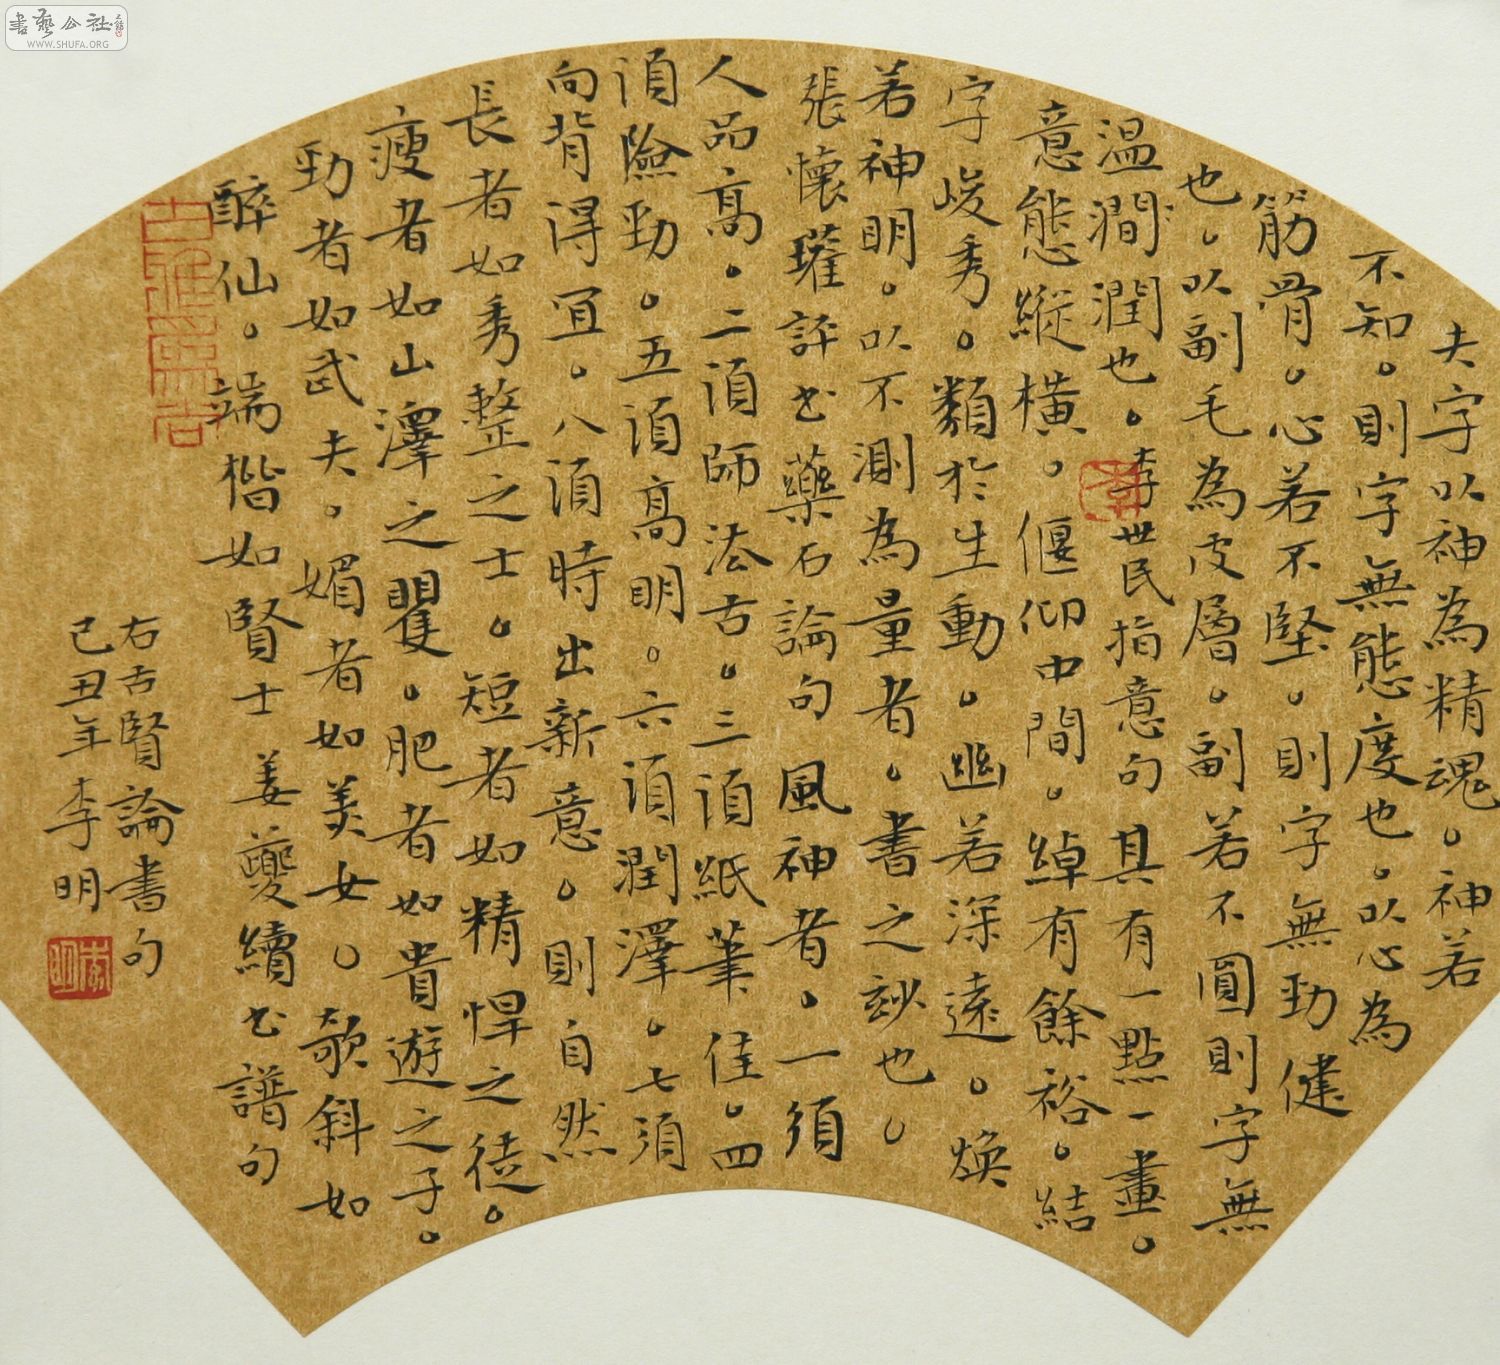 夫字以神為精魂。神若
不知。則字無態度也。以心為
筋骨。心若不堅。則字無勁健
也。以副毛為皮層。副若不圓則字無
温澗潤也。李世民指意句 其有一點一畫。
意態縱橫。偃仰中間。綽有餘裕。結
字峻秀。類於生動。幽若深遠。煥
若神明。以不測為量者。書之玅也。
張懷瓘評书藥石論句 風神者。一須
人品高。二須師法古。三須紙筆佳。四
須險勁。五須高明。六須潤澤。七須
向背得宜。八須時出新意。則自然
長者如秀整之士。短者如精悍之徒。
瘦者如山澤之臞。肥者如貴遊之子。
勁者如武夫。媚者如美女。欹斜如
醉仙。端楷如賢士 姜夔續书譜句
右古賢論書句
己丑年李明
李明
書藝公社
WWW.SHUFA.ORG